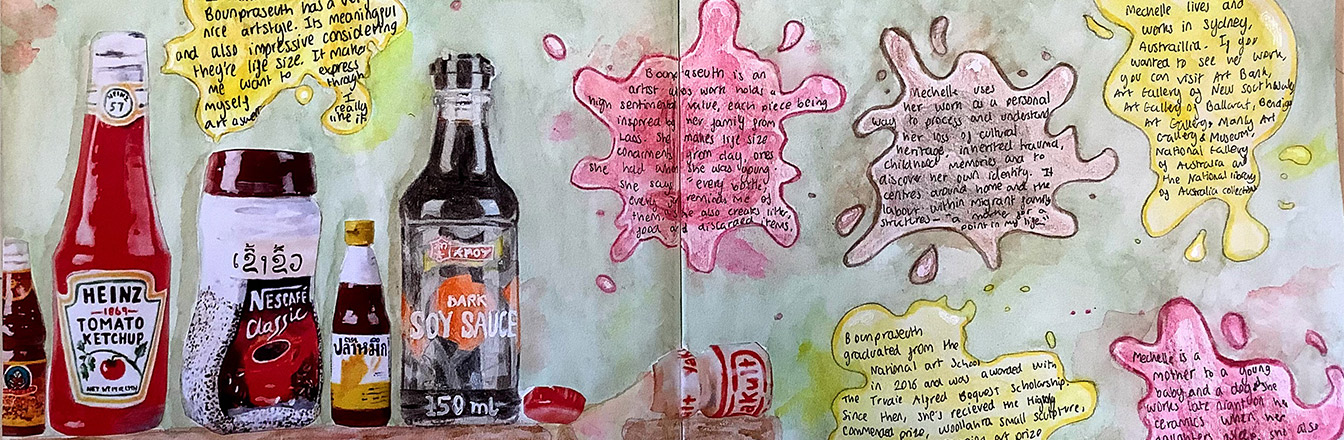 Bounpraseuth has a very
nice artstyle. Its meaningful
and also impressive considering
they're life size. It makes
me want to express
myself through
art aswell I
really
like it
HEINZ
57
HEINZ
1869
TOMATO
KETCHUP
NET WT
ເຂົ້າຂົ້ວ
NESCAFÉ
Classic
ปลาหมึก
DARK
SOY SAUCE
150 ml
Yakult
Bounpraseuth is an
artist who's work holds a
high sentimental value, each piece being
inspired by her family from
Laos. She makes life size
condiments from clay, ones
she had when she was young.
she says "every bottle,
every reminds me of
them, she also creates litter,
food and discarded items.
Mechelle uses
her work as a personal
way to process and understand
her loss of cultural
heritage, inherited trauma,
childhood memories and to
discover her own identity. It
centres around home and the
labour within migrant family
structures - a motive for a
point in my life"
Mechelle lives and
works in Sydney,
Austraillia. If you
wanted to see her work,
you can visit Art Bank,
Art Gallery of New South Wales
Art Gallery of Ballarat, Bendigo
Art Gallery, Manly Art
Gallery & Museum,
National Gallery
of Australia and
the National library
of Australia collection
Bounpraseuth
graduated from the
National art School
in 2016 and was awarded with
the Trudie Alfred Bequest Scholarship.
Since then, she's recieved the Highly
commended prize, Woollahra small sculpture,
art prize
Mechelle is a
mother to a young
baby and a dog. She
works late night on her
ceramics when her
she also